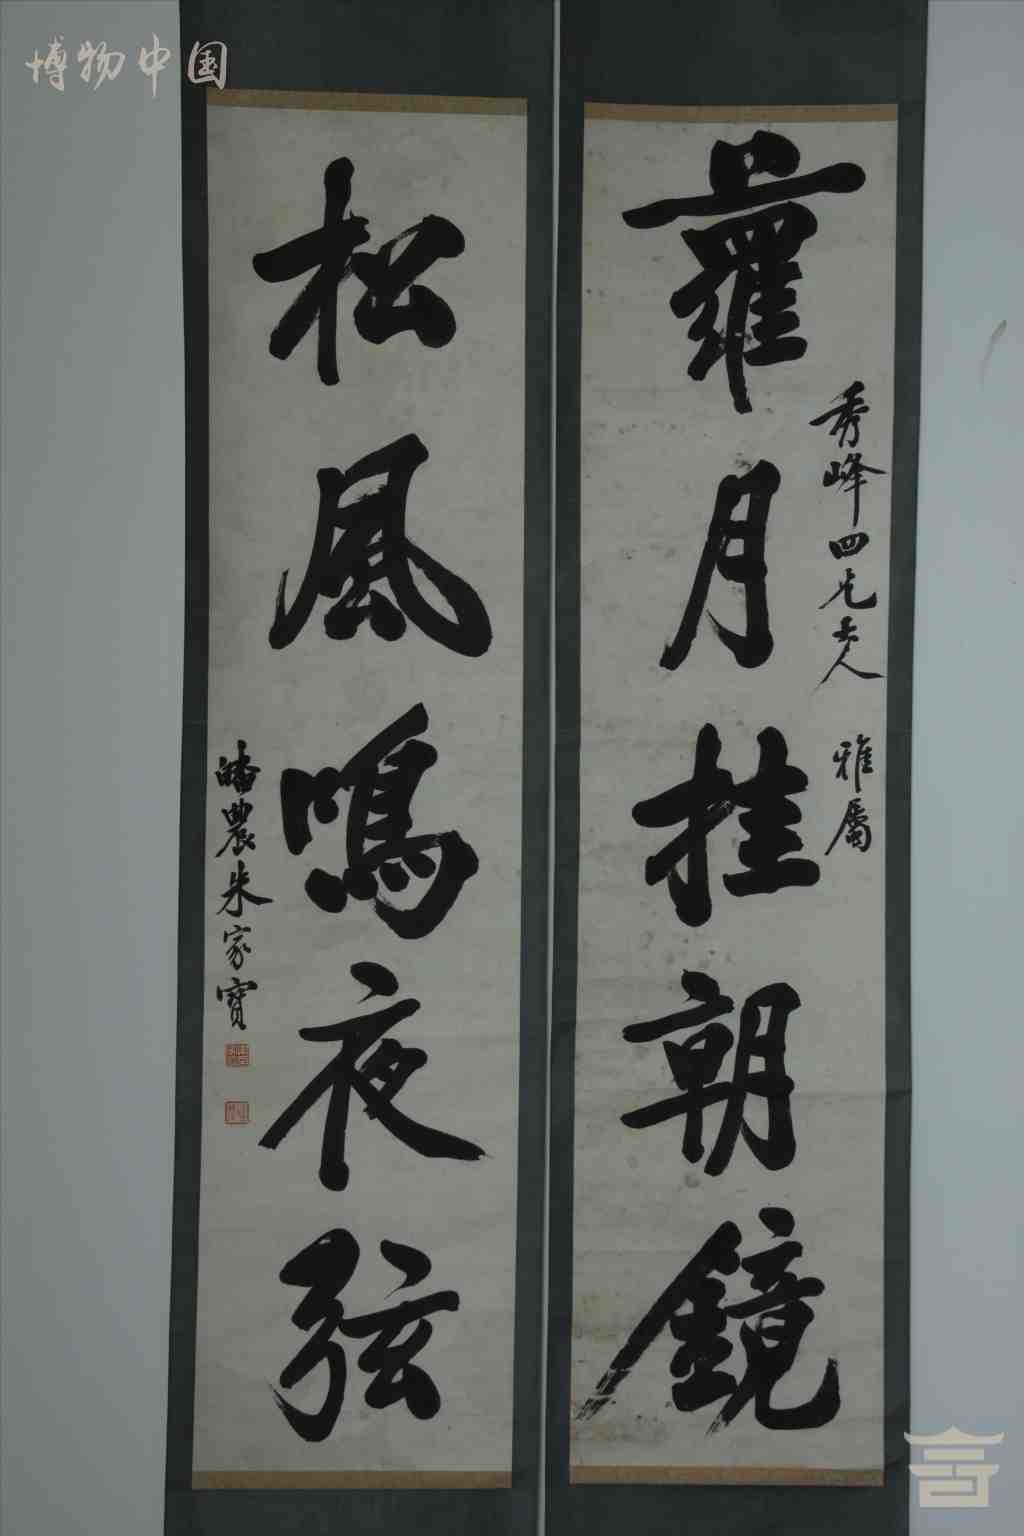 博物中国
蘿月挂朝鏡
秀峰四兄大人 雅屬
松風鳴夜弦
皤農朱家寶